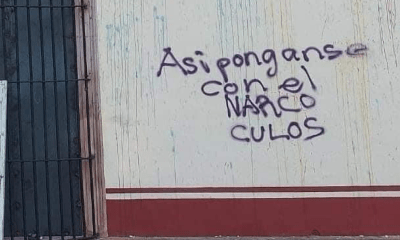 Asi ponganse
con el
NARCO
CULOS